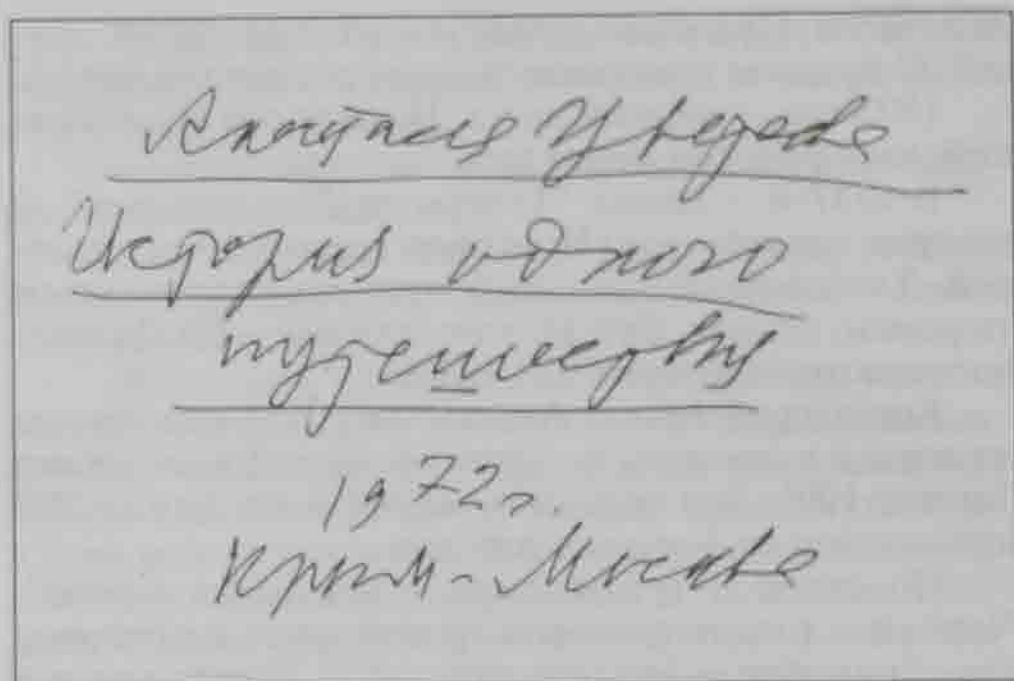 Анастасия Цветаева
История одного
путешествия
1972 г.
Крым - Москва